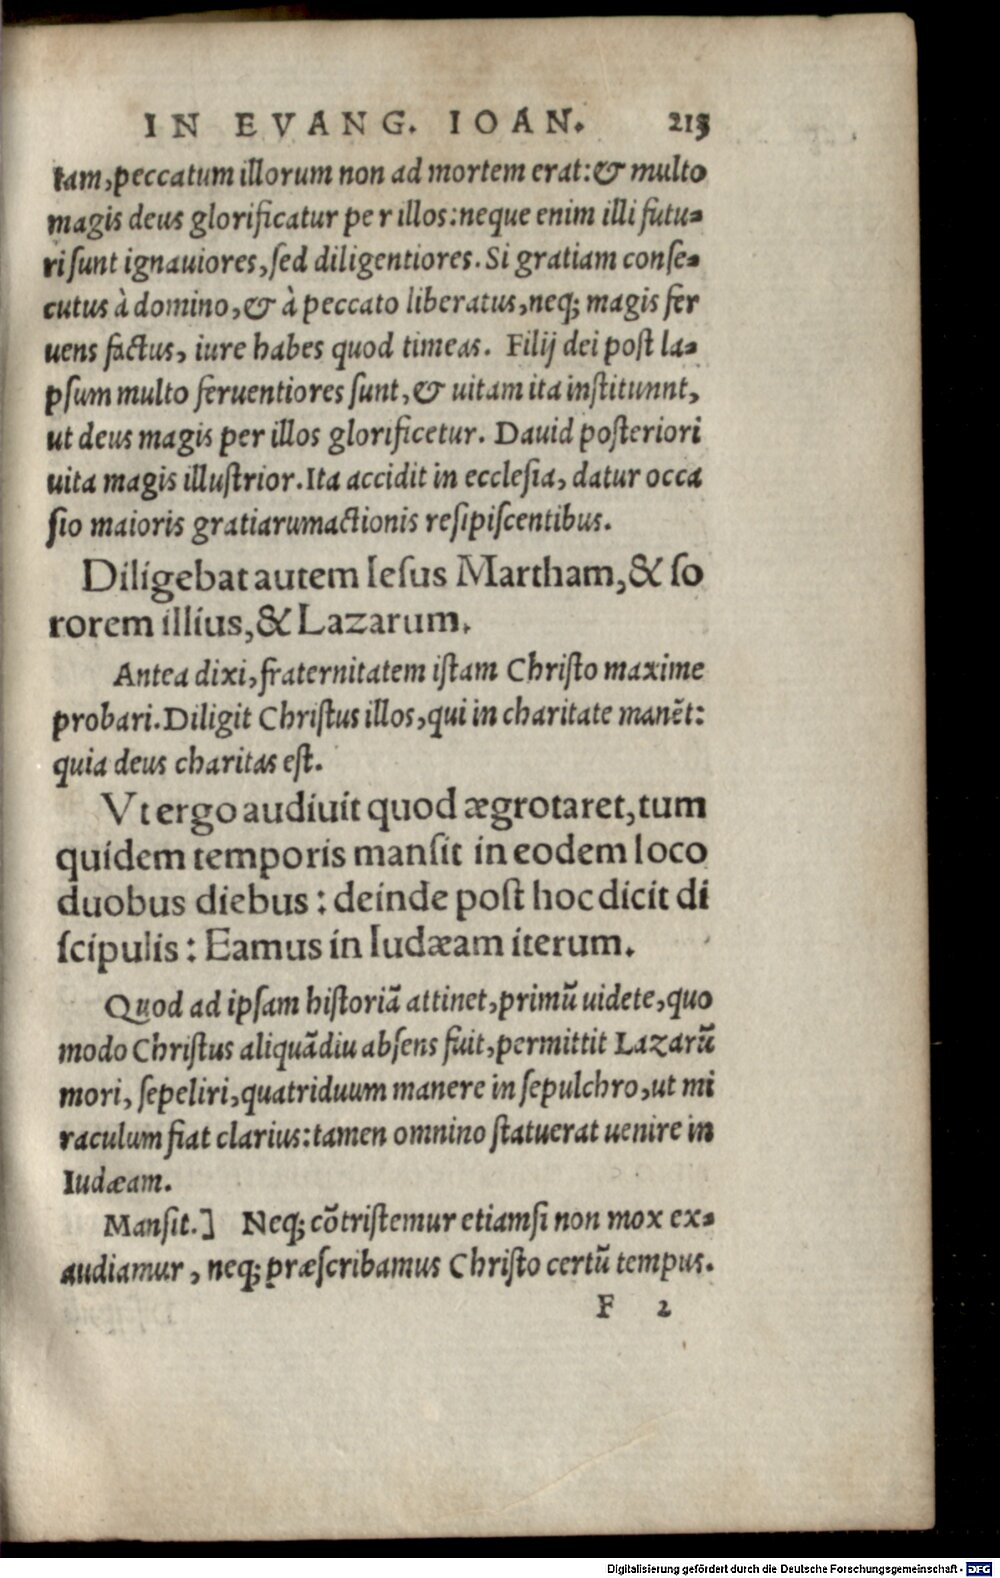 IN EVANG. IOAN. 213
tam,peccatum illorum non ad mortem erat:& multo
magis deus glorificatur per illos:neque enim illi futu-
ri sunt ignauiores,sed diligentiores. Si gratiam conse-
cutus à domino,& à peccato liberatus,neq; magis fer
uens factus, iure habes quod timeas. Filij dei post la-
psum multo feruentiores sunt,& uitam ita institunnt,
ut deus magis per illos glorificetur. Dauid posteriori
uita magis illustrior. Ita accidit in ecclesia, datur occa
sio maioris gratiarumactionis resipiscentibus.
Diligebat autem Iesus Martham,& so
rorem illius,& Lazarum.
Antea dixi,fraternitatem istam Christo maxime
probari. Diligit Christus illos,qui in charitate manēt:
quia deus charitas est.
Vt ergo audiuit quod ægrotaret,tum
quidem temporis mansit in eodem loco
duobus diebus: deinde post hoc dicit di
scipulis: Eamus in Iudæam iterum.
Quod ad ipsam historiā attinet,primū uidete,quo
modo Christus aliquādiu absens fuit,permittit Lazarū
mori, sepeliri,quatriduum manere in sepulchro,ut mi
raculum fiat clarius:tamen omnino statuerat uenire in
Iudæam.
Mansit.] Neq; cōtristemur etiamsi non mox ex-
audiamur, neq; præscribamus Christo certū tempus.
F 2
Digitalisierung gefördert durch die Deutsche Forschungsgemeinschaft - DFG